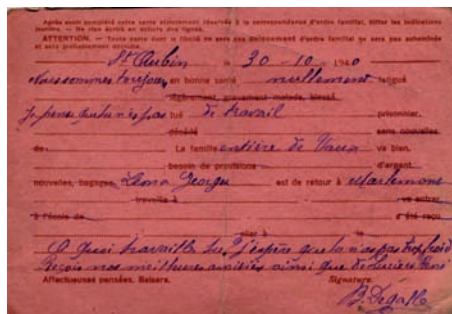 Après avoir complété cette carte strictement réservée à la correspondance d'ordre familial, biffer les indications
inutiles. — Ne rien écrire en dehors des lignes.
ATTENTION. — Toute carte dont le libellé ne sera pas uniquement d'ordre familial ne sera pas acheminée
et sera probablement détruite.
St Aubin le 30-10-1940
Nous sommes toujours en bonne santé nullement fatigué
légèrement, gravement malade, blessé.
Je pense que tu n'es pas tué de travail prisonnier.
décédé sans nouvelles
de La famille entière de Vaux va bien.
besoin de provisions d'argent.
nouvelles, bagages Georges est de retour à
travaille à va entrer
à l'école de a été reçu
aller à le
A quoi travailles tu, j'espère que tu n'as pas trop froid
Reçois nos meilleures amitiés ainsi que de Lucien René
Affectueuses pensées. Baisers. Signature.